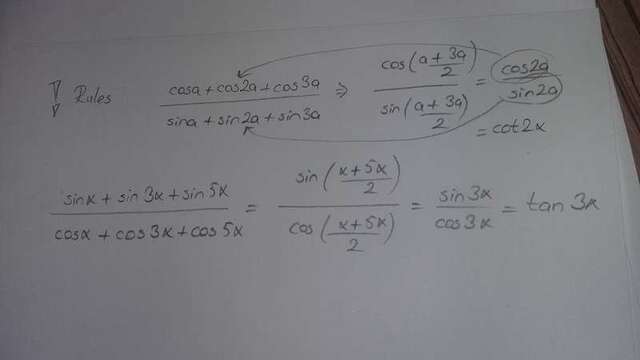 Rules (cosa + cos2a + cos3a)/(sina + sin2a + sin3a) ⇒ cos((a+3a)/2)/sin((a+3a)/2) = cos2a/sin2a
= cot2x
(sinx + sin3x + sin5x)/(cosx + cos3x + cos5x) = sin((x+5x)/2)/cos((x+5x)/2) = sin3x/cos3x = tan3x